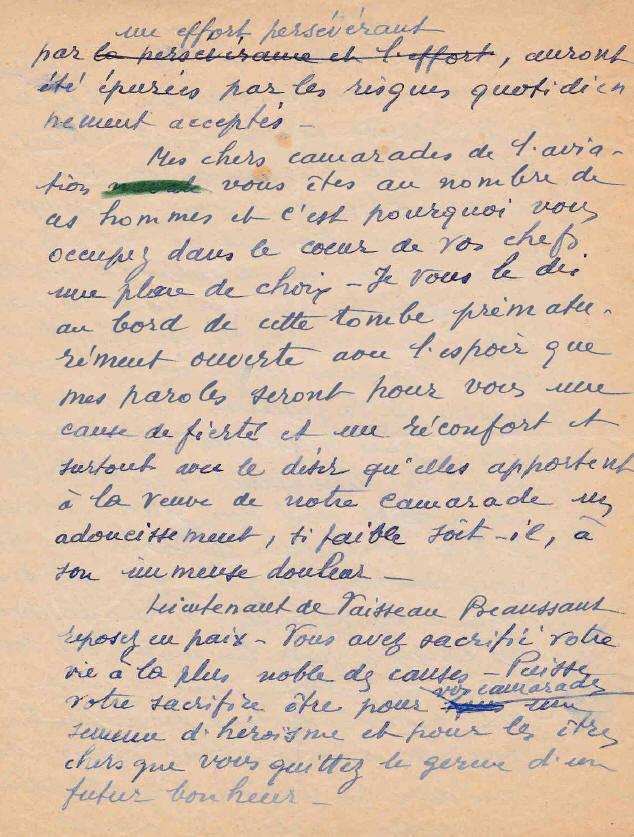 un effort persévérant
par la persévérance et l'effort, auront
été épurées par les risques quotidien
nement acceptés -
Mes chers camarades de l'avia-
tion vous êtes au nombre de
ces hommes et c'est pourquoi vous
occupez dans le coeur de vos chefs
une place de choix - Je vous le dis
au bord de cette tombe prématu-
rément ouverte avec l'espoir que
mes paroles seront pour vous une
cause de fierté et un réconfort et
surtout avec le désir qu'elles apportent
à la veuve de notre camarade un
adoucissement, si faible soit-il, à
son immense douleur -
Lieutenant de Vaisseau Beaussant
reposez en paix - Vous avez sacrifié votre
vie à la plus noble des causes - Puisse
vos camarades
votre sacrifice être pour une
semence d'héroïsme et pour les êtres
chers que vous quittez le germe d'un
futur bonheur -